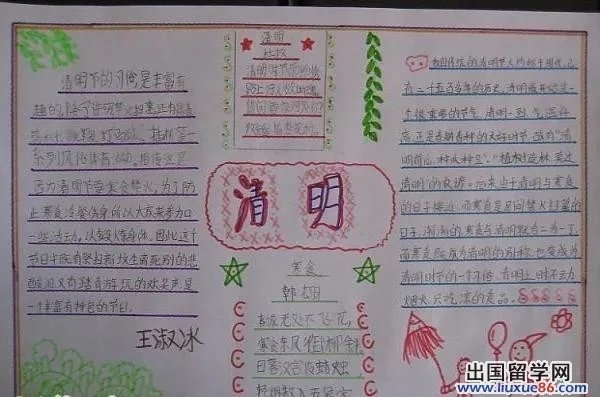 清明节的习俗是丰富有
趣的,除了讲究禁火、扫墓,还有踏青
荡秋千、蹴鞠、打马球、插柳等一
系列风俗体育活动。相传这是
因为清明节要寒食禁火,为了防
止寒食冷餐伤身,所以大家来参加
一些活动,以锻炼身体。因此,这个
节日中既有祭扫新坟生离死别的悲
酸泪,又有踏青游玩的欢笑声,是
一个丰富有特色的节日。
王淑冰
清明
杜牧
清明时节雨纷纷
路上行人欲断魂
借问酒家何处有
牧童遥指杏花村
清明
寒食
韩翃
春城无处不飞花,
寒食东风御柳斜
日暮汉宫传蜡烛
轻烟散入五侯家
我国传统的清明节大约始于周代,已
有二千五百多年的历史。清明最开始是一
个很重要的节气,清明一到,气温升
高,正是春耕春种的大好时节,故有“清
明前后,种瓜种豆”。“植树造林,莫过
清明”的农谚。后来,由于清明与寒食
的日子接近,而寒食是民间禁火扫墓的
日子,渐渐的,寒食与清明就合二为一了,
而寒食既成为清明的别称,也变成为
清明时节的一个习俗,清明之时不动
烟火,只吃凉的食品。
出国留学网
www.liuxue86.com